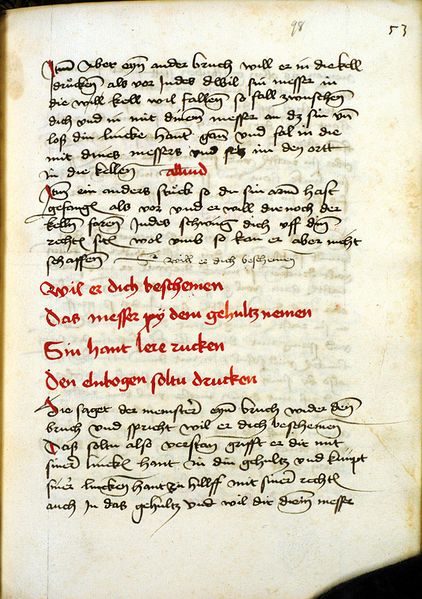 98
53
Itm̄ Aber eyn̄ ander bruch will er in die kell
drücken als vor Indes dwil sin messer in
die will kell wil fallen so fall zwuschen
dich vnd in mit dinem messer an dz sin vn̄
loß din lincke hant gan̄ vnd fal in die
mit dines messers vnd setz im den ortt
in die kellen alliud
Itm̄ ein anders stück so du sin arm̄ hast
gefangē als vor vnd er will die noch der
kellen faren Indes schwing dich vff din
rechtē sitē wol vmb so kan er aber nicht
schaffen will er dich beschemen
Wil er dich beschemen
Das messer py dem gehultz nemen
Sin hant lere rucken
Den elnbogen soltu drucken
Hie saget der meinster eyn̄ bruch wider den
bruch vnd spricht wil er dich beschemen
Daß soltu also verstan grifft er dir mit
siner linckē hant in din gehultz vnd kumpt
siner lincken hant zu hillff mit siner rechtē
auch in das gehultz vnd wil dir diein messer